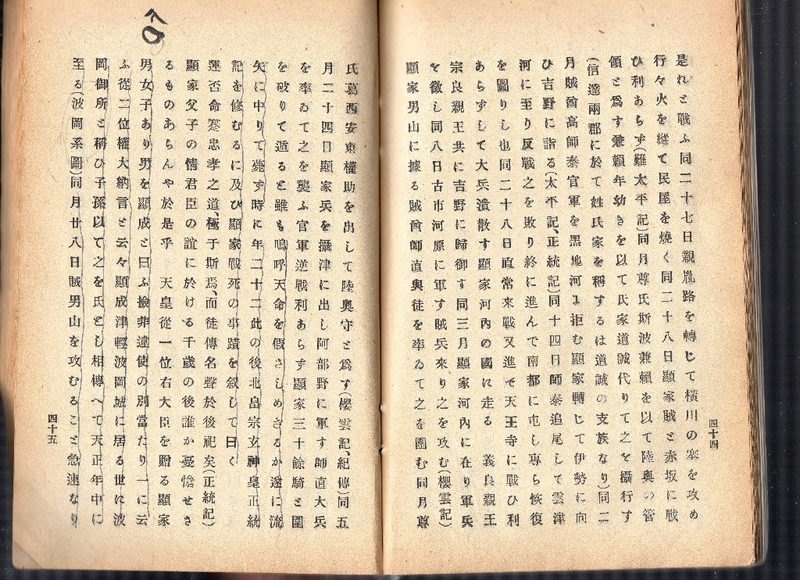 是れと戰ふ同二十七日親胤路を轉じて橫川の寨を攻め
行々火を縱て民屋を燒く同二十八日顯家賊と赤坂に戰
ひ利あらず(難太平記)同月尊氏斯波兼賴を以て陸奧の管
領と爲す兼賴年幼きを以て氏家道誠代りて之を攝行す
(信達兩郡に於て姓氏家を稱するは道誠の支族なり)同二
月賊酋高師泰官軍を黑地河に拒む顯家轉じて伊勢に向
ひ吉野に詣る(太平記、正統記)同十四日師泰追尾して雲津
河に至り反戰之を敗り終に進んで南都に屯し專ら恢復
を圖りし也同二十八日直常來戰又進で天王寺に戰ひ利
あらずして大兵潰散す顯家河內の國に走る　義良親王
宗良親王共に吉野に歸御す同三月顯家河內に在り軍兵
を徵し同八日古市河原に軍す賊兵來り之を攻む(櫻雲記)
顯家男山に據る賊酋師直與徒を率ゐて之を圍む同月尊
四十四
氏葛西安東權助を出して陸奧守と爲す(櫻雲記、紀傳)同五
月二十四日顯家兵を攝津に出し阿部野に軍す師直大兵
を率ゐて之を襲ふ官軍逆戰利あらず顯家三十餘騎と圍
を破りて遁ると雖も嗚呼天命を假さしめざるか遂に流
矢に中りて薨ず時に年二十二此の後北畠宗玄神皇正統
記を修むるに及び顯家戰死の事蹟を敍して曰く
運否命蹇忠孝之道、極于斯焉、而徒傳名聲於後祀矣(正統記)
顯家父子の情君臣の誼に於ける千歲の後誰か憂惋せさ
るものあらんや於是乎　天皇從一位右大臣を贈る顯家
男女子あり男を顯成と曰ふ撿非違使の別當たり一に云
ふ從二位權大納言と云々顯成津輕波岡城に居る世に波
岡御所と稱ひ子孫以て之を氏とし相傳へて天正年中に
至る(波岡系圖)同月廿八日賊男山を攻むること急速なり
四十五